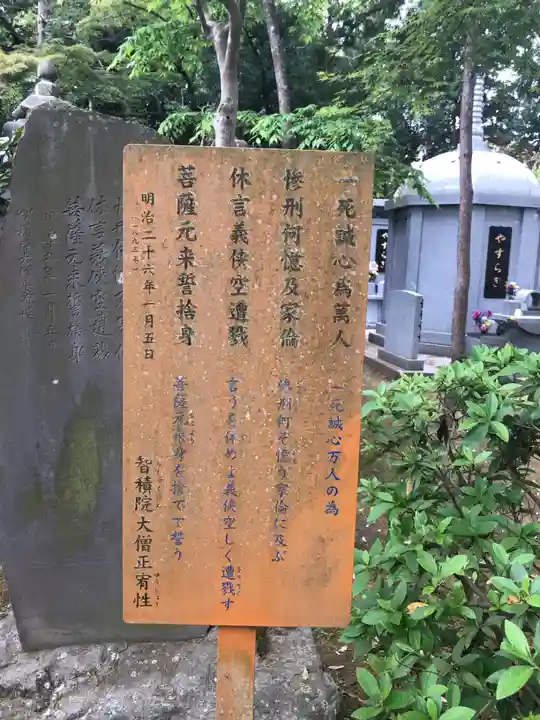 一死誠心為萬人
惨刑何憶及家倫
休言義侠空遭戮
菩薩元来誓捨身
明治二十六年一月五日
一八九三年
智積院大僧正宥性
一死誠心万人の為
惨刑何ぞ憶う家倫に及ぶ
言うを休めよ義侠空しく遭戮す
菩薩元来身を捨てて誓う
やすらぎ